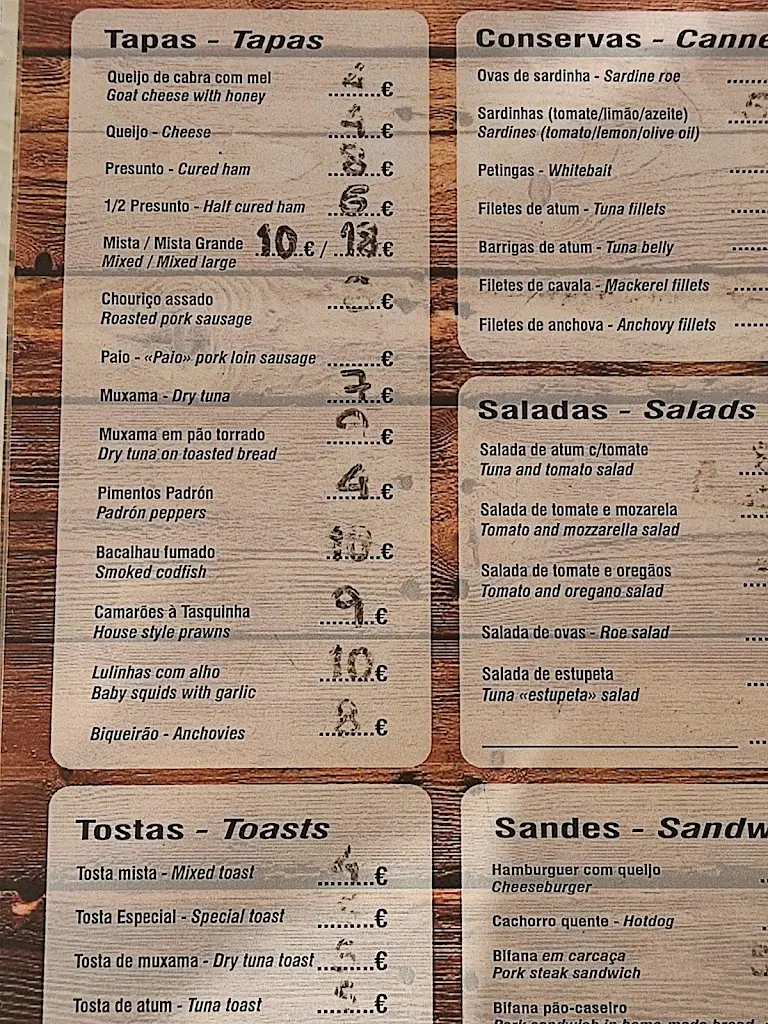 Tapas - Tapas
Queijo de cabra com mel
Goat cheese with honey ........€
Queijo - Cheese ........€
Presunto - Cured ham ..8..€
1/2 Presunto - Half cured ham ..6..€
Mista / Mista Grande ..10..€ / ........€
Mixed / Mixed large
Chouriço assado ........€
Roasted pork sausage
Paio - «Paio» pork loin sausage ........€
Muxama - Dry tuna ..7..€
Muxama em pão torrado ........€
Dry tuna on toasted bread
Pimentos Padrón ..4..€
Padrón peppers
Bacalhau fumado ..10..€
Smoked codfish
Camarões à Tasquinha ..9..€
House style prawns
Lulinhas com alho ..10..€
Baby squids with garlic
Biqueirão - Anchovies ..8..€
Tostas - Toasts
Tosta mista - Mixed toast ..4..€
Tosta Especial - Special toast ........€
Tosta de muxama - Dry tuna toast ........€
Tosta de atum - Tuna toast ........€
Conservas - Canne
Ovas de sardinha - Sardine roe
Sardinhas (tomate/limão/azeite)
Sardines (tomato/lemon/olive oil)
Petingas - Whitebait
Filetes de atum - Tuna fillets
Barrigas de atum - Tuna belly
Filetes de cavala - Mackerel fillets
Filetes de anchova - Anchovy fillets
Saladas - Salads
Salada de atum c/tomate
Tuna and tomato salad
Salada de tomate e mozarela
Tomato and mozzarella salad
Salada de tomate e oregãos
Tomato and oregano salad
Salada de ovas - Roe salad
Salada de estupeta
Tuna «estupeta» salad
Sandes - Sandw
Hamburguer com queijo
Cheeseburger
Cachorro quente - Hotdog
Bifana em carcaça
Pork steak sandwich
Bifana pão-caseiro
Pork sandwich in home-made bread